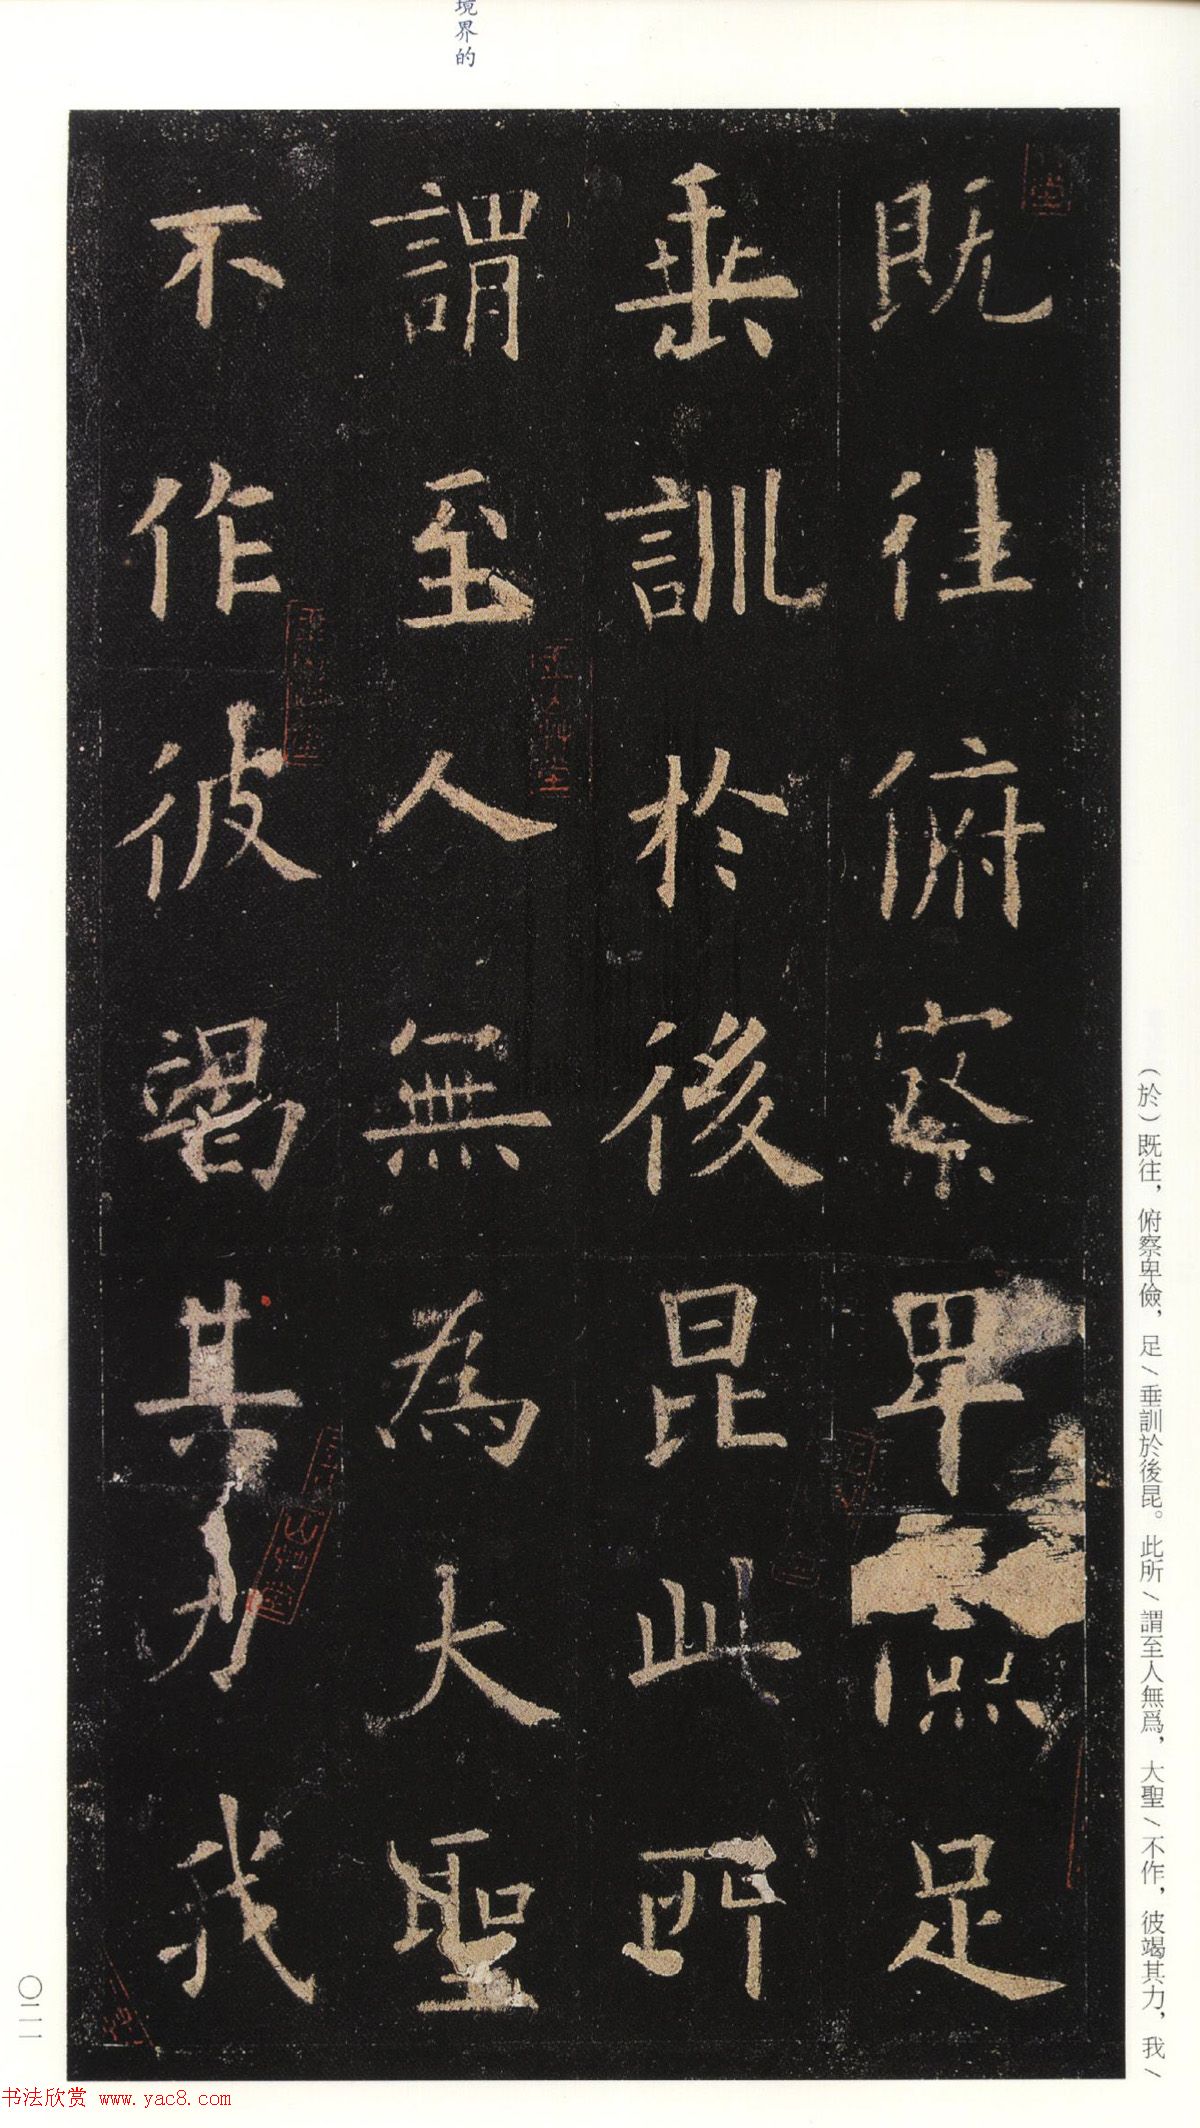 境界的
既往俯察卑儉足
垂訓於後昆此所
謂至人無為大聖
不作彼竭其力我
（於）既往，俯察卑儉，足/垂訓於後昆。此所/謂至人無爲，大聖/不作，彼竭其力，我/
〇二一
书法欣赏 www.yac8.com